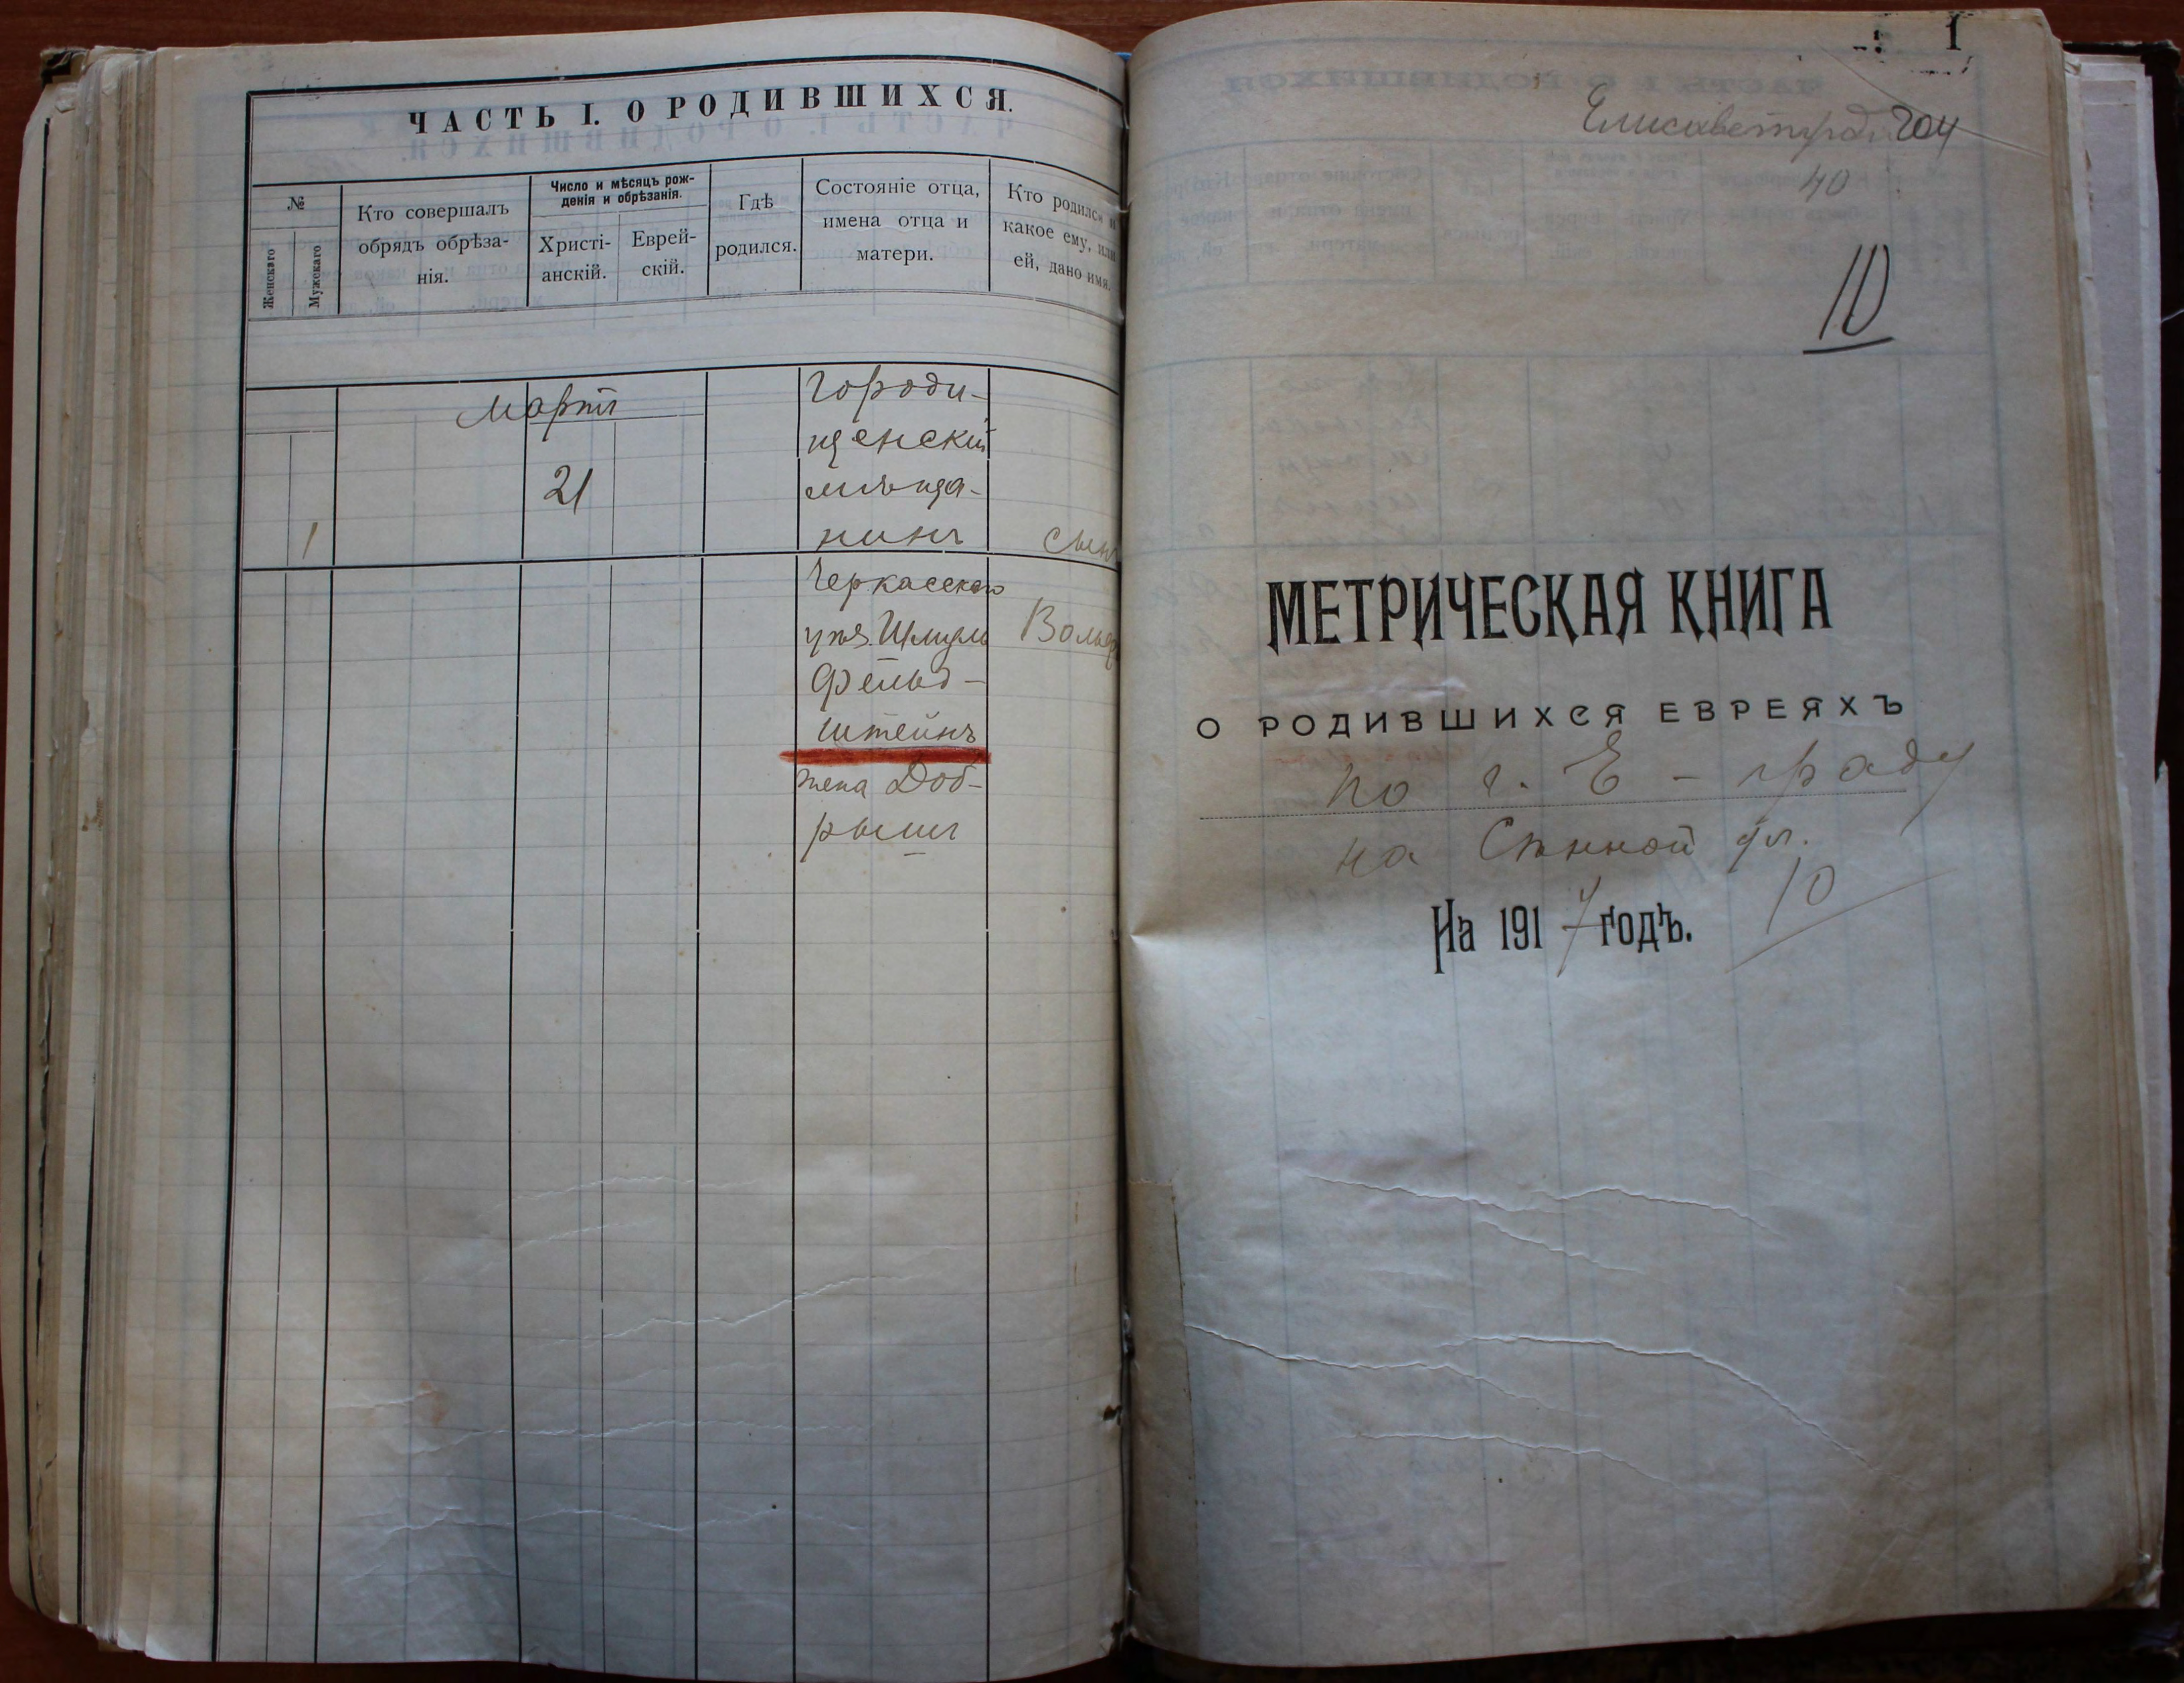 ЧАСТЬ I. О РОДИВШИХСЯ.
№
Женскаго
Мужскаго
Кто совершалъ
обрядъ обрѣза-
нія.
Число и мѣсяцъ рож-
денія и обрѣзанія.
Христі-
анскій.
Еврей-
скій.
Гдѣ
родился.
Состояніе отца,
имена отца и
матери.
Кто родился и
какое ему, или
ей, дано имя.
Мартъ
1
21
Городи-
щенскій
мѣща-
нинъ
Черкасскаго
уѣз. Шмуль
Фельд-
штейнъ
жена Доб-
рышъ
сынъ
Вольф
1
Елисаветград 204
40
10
МЕТРИЧЕСКАЯ КНИГА
О РОДИВШИХСЯ ЕВРЕЯХЪ
по г. Е-граду
на Сѣнной ул.
На 1917 годъ.
10